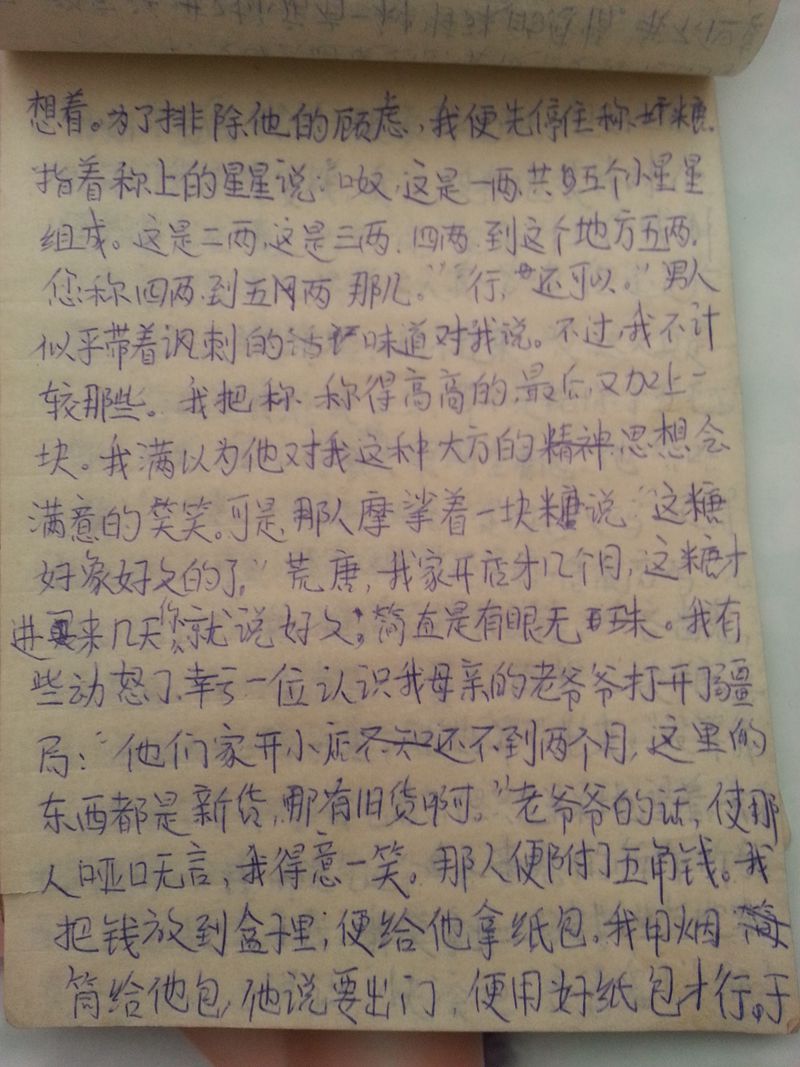 想着。为了排除他的顾虑，我便先停住称糖。
指着称上的星星说：“呶，这是一两，共五个小星星
组成。这是二两，这是三两、四两、到这个地方五两，
您称四两，到五两那儿。”“行，还可以。”男人
似乎带着讽刺的味道对我说。不过，我不计
较那些。我把称、称得高高的，最后，又加上一
块。我满以为他对我这种大方的精神思想会
满意的笑笑。可是，那人摩挲着一块糖说“这糖
好象好久的了。”荒唐，我家开店才几个月，这糖才
进来几天，你就说好久，简直是有眼无珠。我有
些动怒了，幸亏一位认识我母亲的老爷爷打开了疆
局：“他们家开小店还不到两个月，这里的
东西都是新货，那有旧货啊。”老爷爷的话，使那
人哑口无言，我得意一笑。那人便附了五角钱。我
把钱放到盒子里；便给他拿纸包。我用烟
筒给他包，他说要出门，便用好纸包才行。于